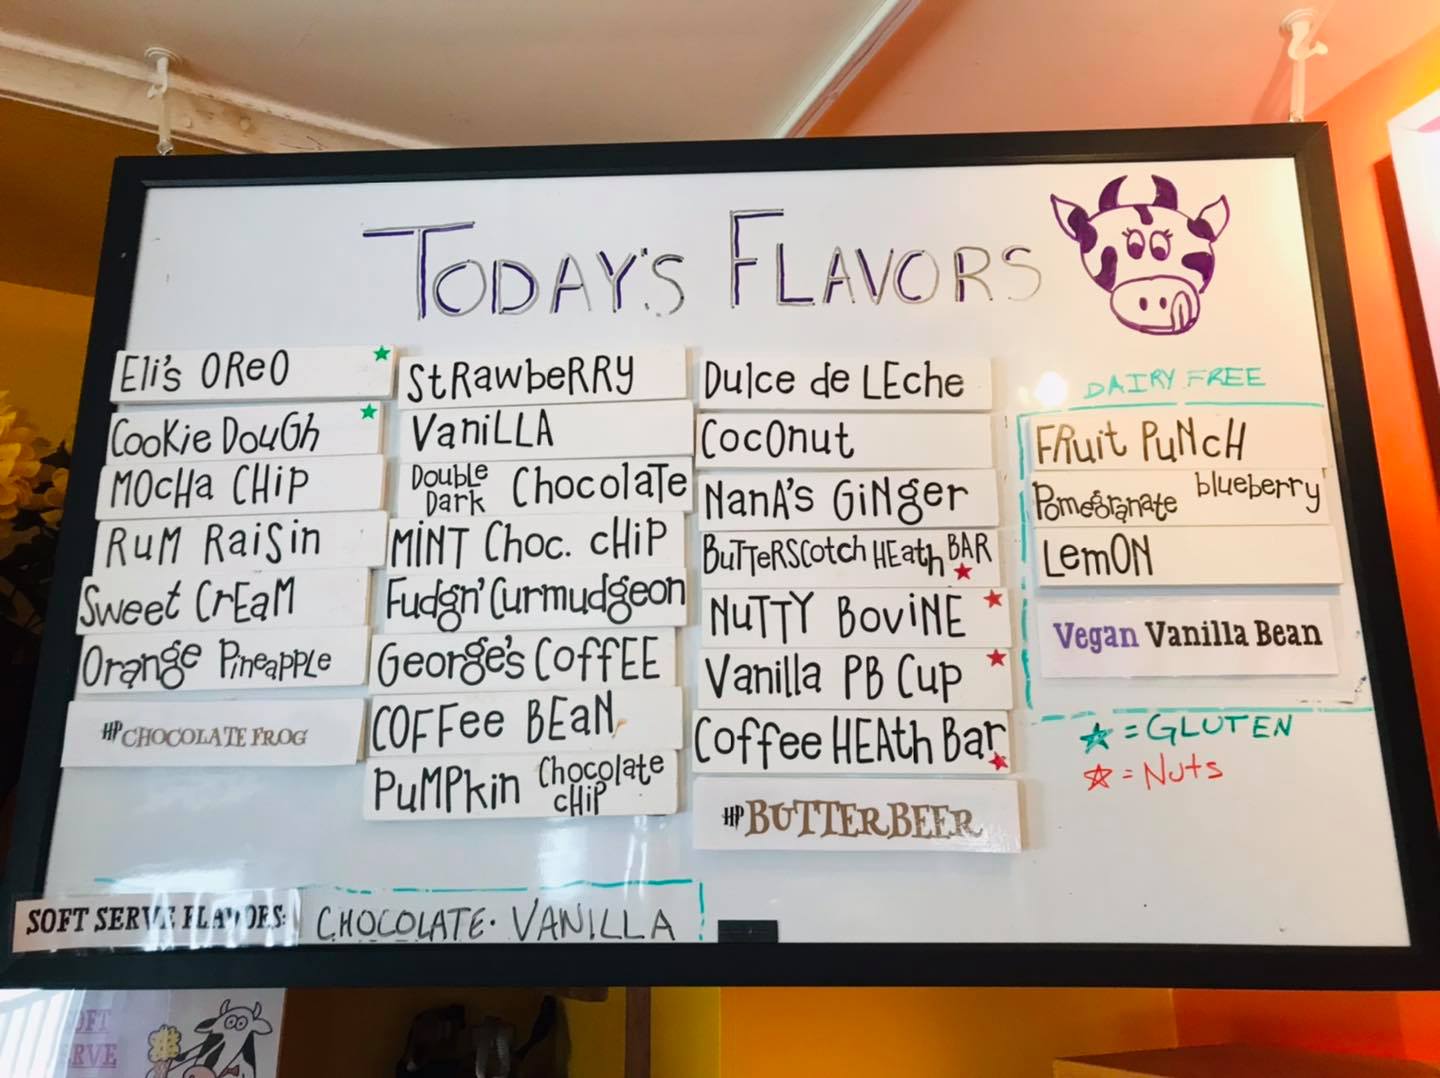 TODAY'S FLAVORS
Eli's OReO
CooKie DouGh
MOcHa CHiP
RuM RaiSin
Sweet CrEaM
Orange Pineapple
HP CHOCOLATE FROG
StRawbeRRy
VaniLLA
DoubLe Dark ChocoLaTe
MiNT Choc. cHiP
Fudgn' Curmudgeon
George's CoffEE
COFFee BEaN
PuMPkin Chocolate cHiP
Dulce de LEche
CocOnut
NanA's GiNger
BuTTeRSCotch HEath BAR
NuTTY BoviNE
Vanilla PB Cup
Coffee HEAth Bar
HP BUTTERBEER
DAIRY FREE
FRuit PuNcH
Pomegranate blueberry
LemON
Vegan Vanilla Bean
= GLUTEN
= NuTS
SOFT SERVE FLAVORS: CHOCOLATE · VANILLA
SOFT
SERVE